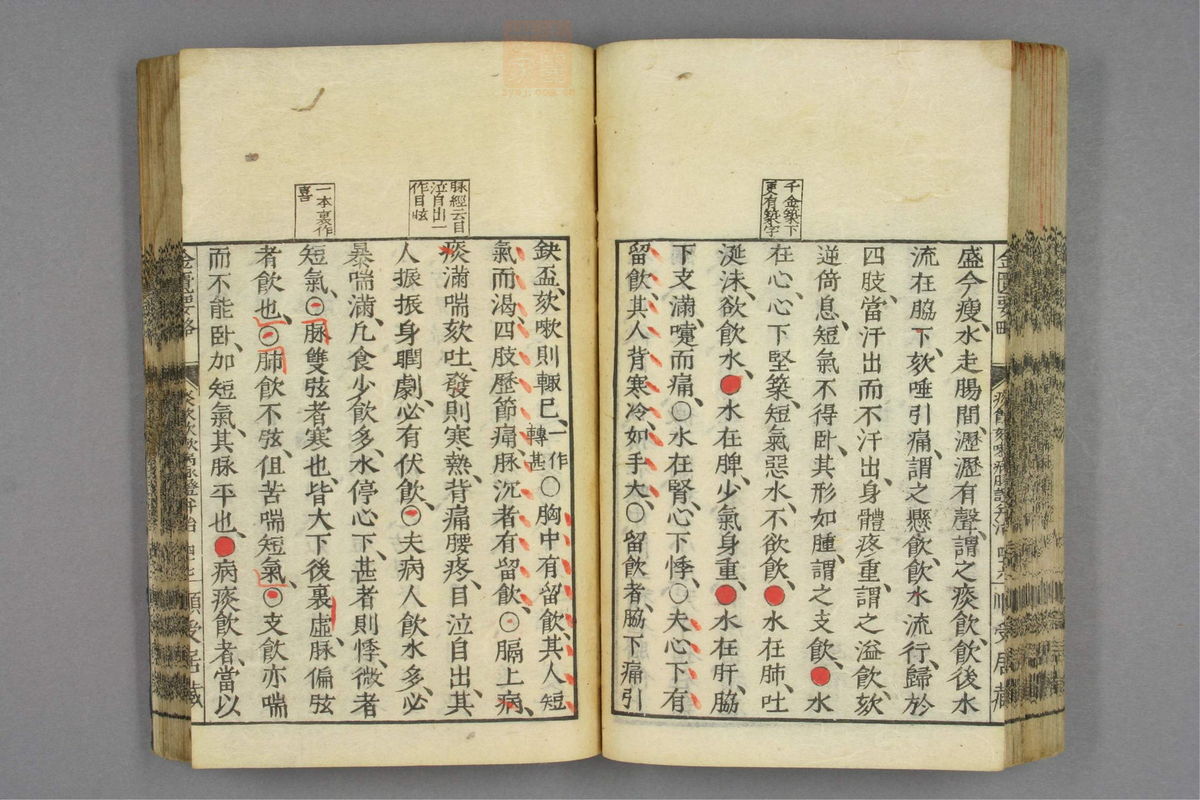 千金築下
更有築字
盛今瘦、水走腸間、瀝瀝有聲、謂之痰飲、飲後水
流在脇下、欬唾引痛、謂之懸飲、飲水流行歸於
四肢、當汗出而不汗出、身體疼重、謂之溢飲、欬
逆倚息、短氣不得臥、其形如腫、謂之支飲、●水
在心、心下堅築、短氣惡水、不欲飲、●水在肺、吐
涎沫、欲飲水、●水在脾、少氣身重、●水在肝、脇
下支滿、嚏而痛、○水在腎、心下悸、○夫心下有
留飲、其人背寒冷、如手大、○留飲者、脇下痛引
脉經云目
泣自出一
作目眩
一本裏作
喜
鈌盃、欬嗽則輙已、一作轉甚○胸中有留飲、其人短
氣而渴、四肢歷節痛、脉沉者有留飲、○膈上病
痰滿喘欬吐、發則寒熱、背痛腰疼、目泣自出、其
人振振身瞤劇、必有伏飲、○夫病人飲水多、必
暴喘滿、凡食少飲多、水停心下、甚者則悸、微者
短氣、○脉雙弦者寒也、皆大下後裏虛、脉偏弦
者飲也、○肺飲不弦、但苦喘短氣、○支飲亦喘
而不能臥、加短氣、其脉平也、●病痰飲者、當以